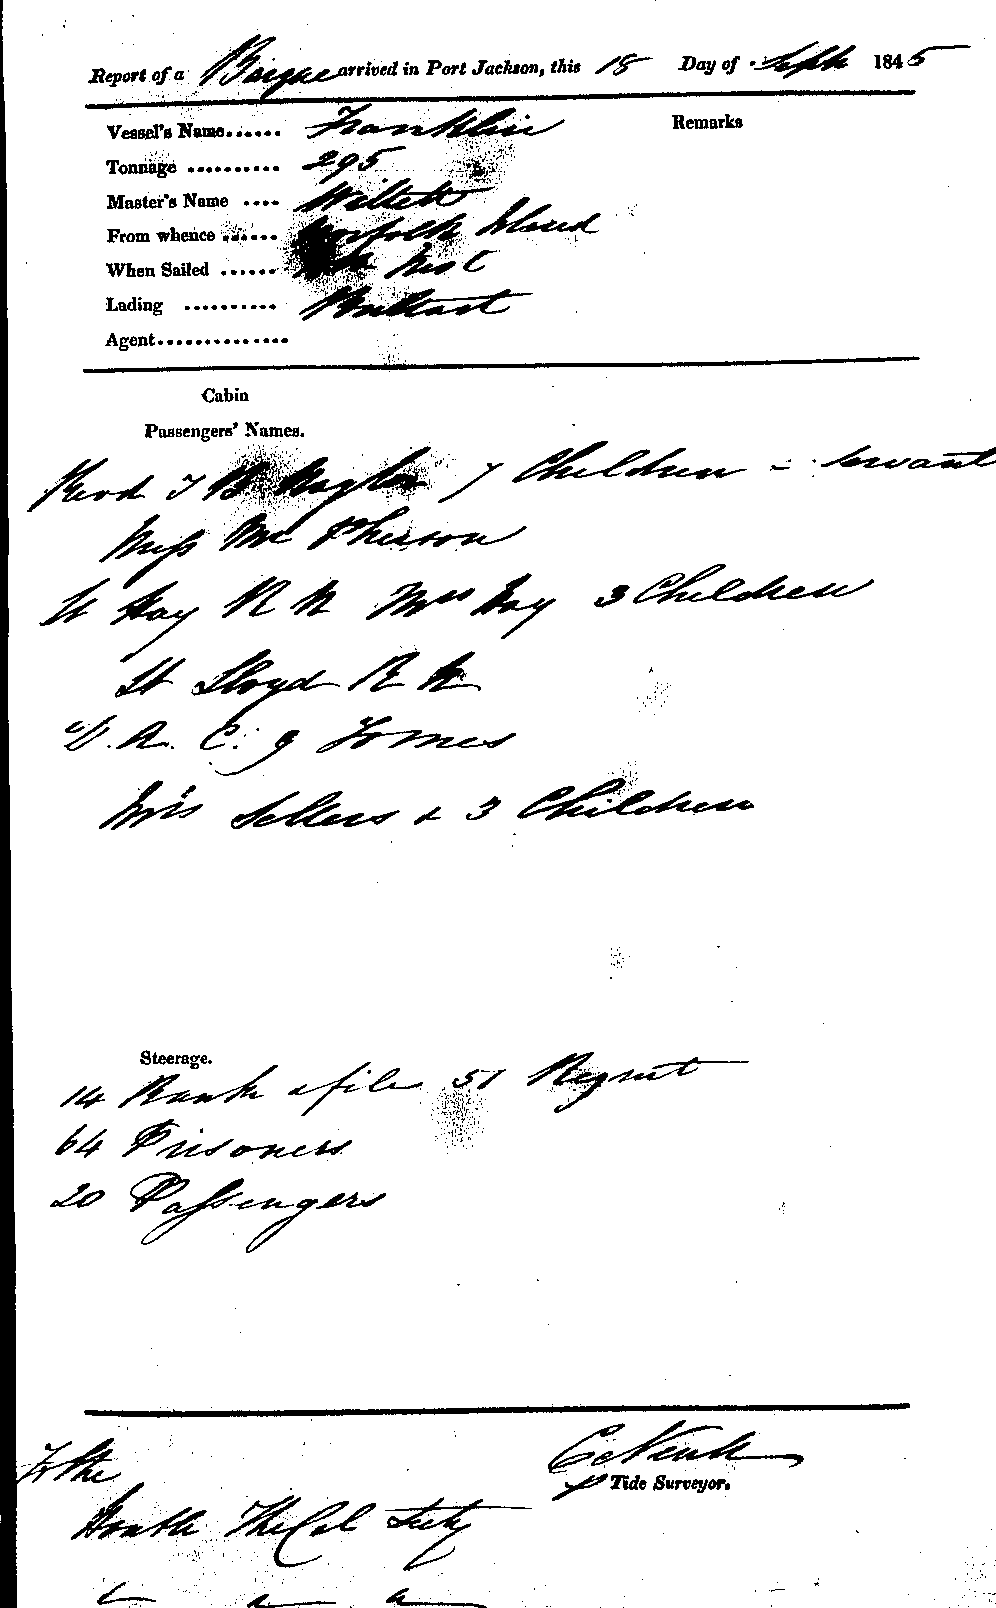 Report of a Barque arrived in Port Jackson, this 18 Day of Septr 1845
Vessel's Name...... Franklin
Remarks
Tonnage .......... 295
Master's Name .... Willett
From whence ...... Norfolk Island
When Sailed ...... Inst
Lading .......... Ballast
Agent..............
Cabin
Passengers' Names.
Revd T B Naylor 7 Children - Servant
Miss Mc Pherson
Lt Hay R N Mrs Hay 3 Children
Lt Lloyd R N
D. A. C. G Tomes
Mrs Sellers & 3 Children
Steerage.
14 Rank & file 51 Regmt
64 Prisoners
20 Passengers
To the
Tide Surveyor.
Honble The Col Secty